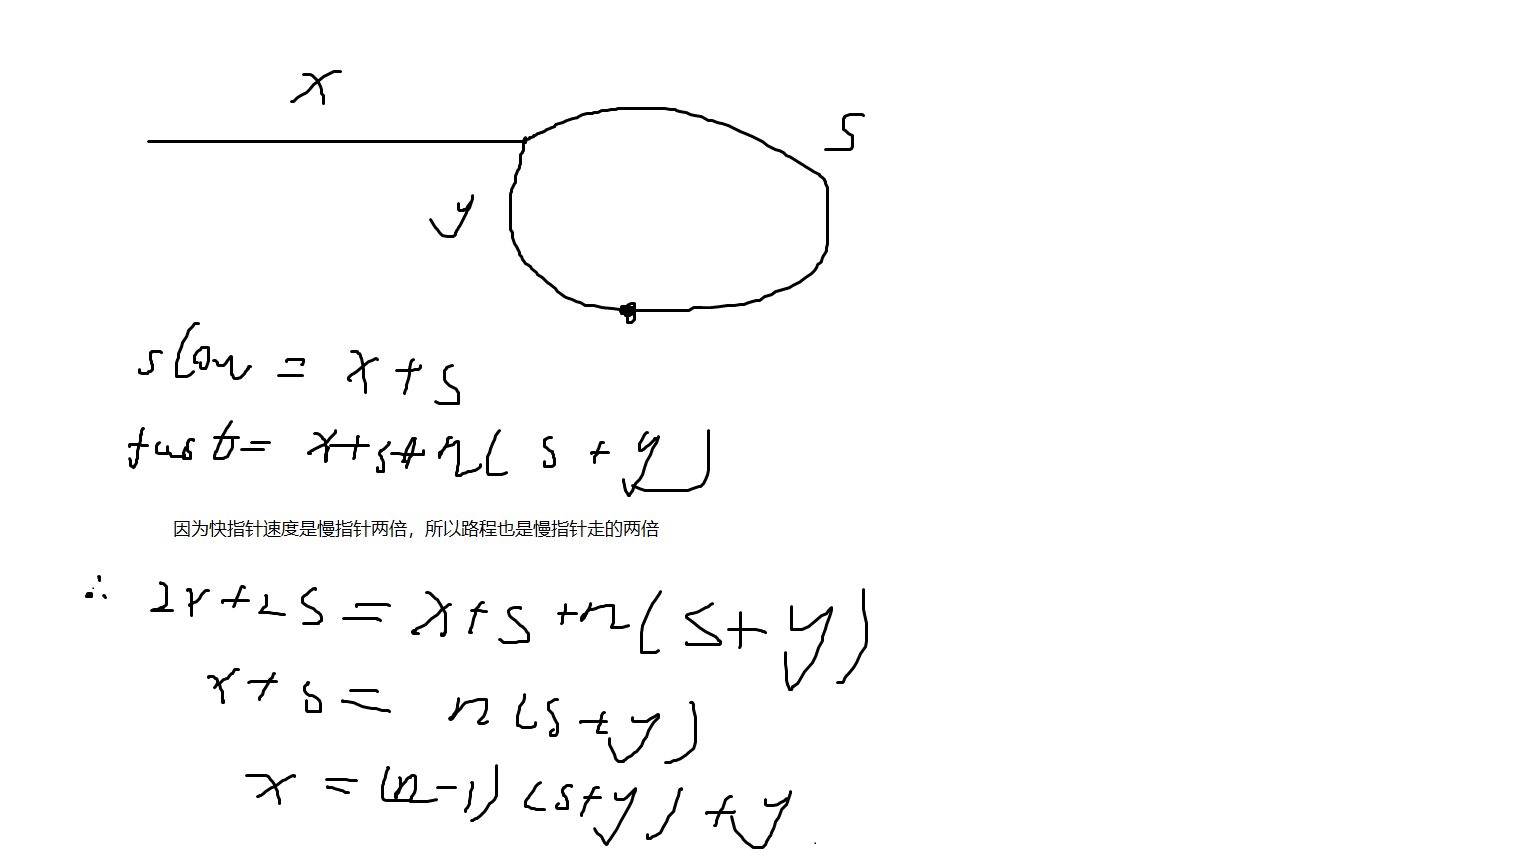 x
s
y
slow = x + s
fast = x+s+n(s+y)
因为快指针速度是慢指针两倍，所以路程也是慢指针走的两倍
∴ 2x+2s = x+s+n(s+y)
x+s = n(s+y)
x = (n-1)(s+y)+y